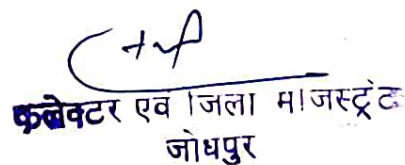 कलेक्टर एव जिला मजिस्ट्रेट
जोधपुर